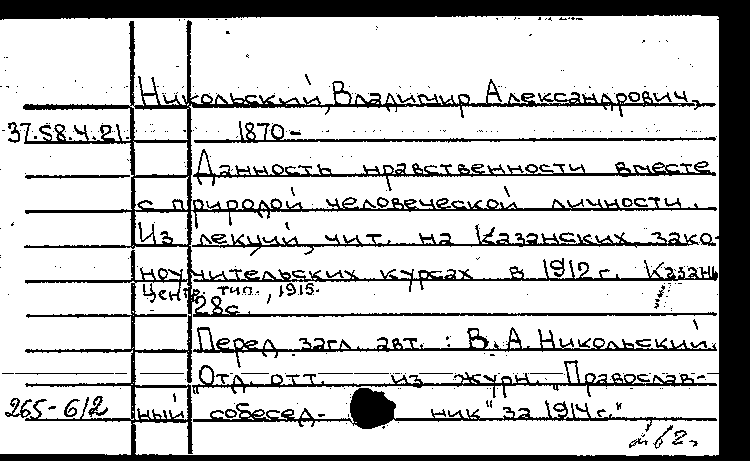 Никольский, Владимир Александрович,
37.58.4.21. 1870-
Данность нравственности вместе
с природой человеческой личности.
Из лекций, чит. на Казанских зако-
ноучительских курсах в 1912 г. Казань
Центр. тип., 1915.
28с.
Перед загл. авт.: В. А. Никольский.
"Отд. отт. из журн. "Православ-
265-612 ный собесед- ник" за 1914 г."